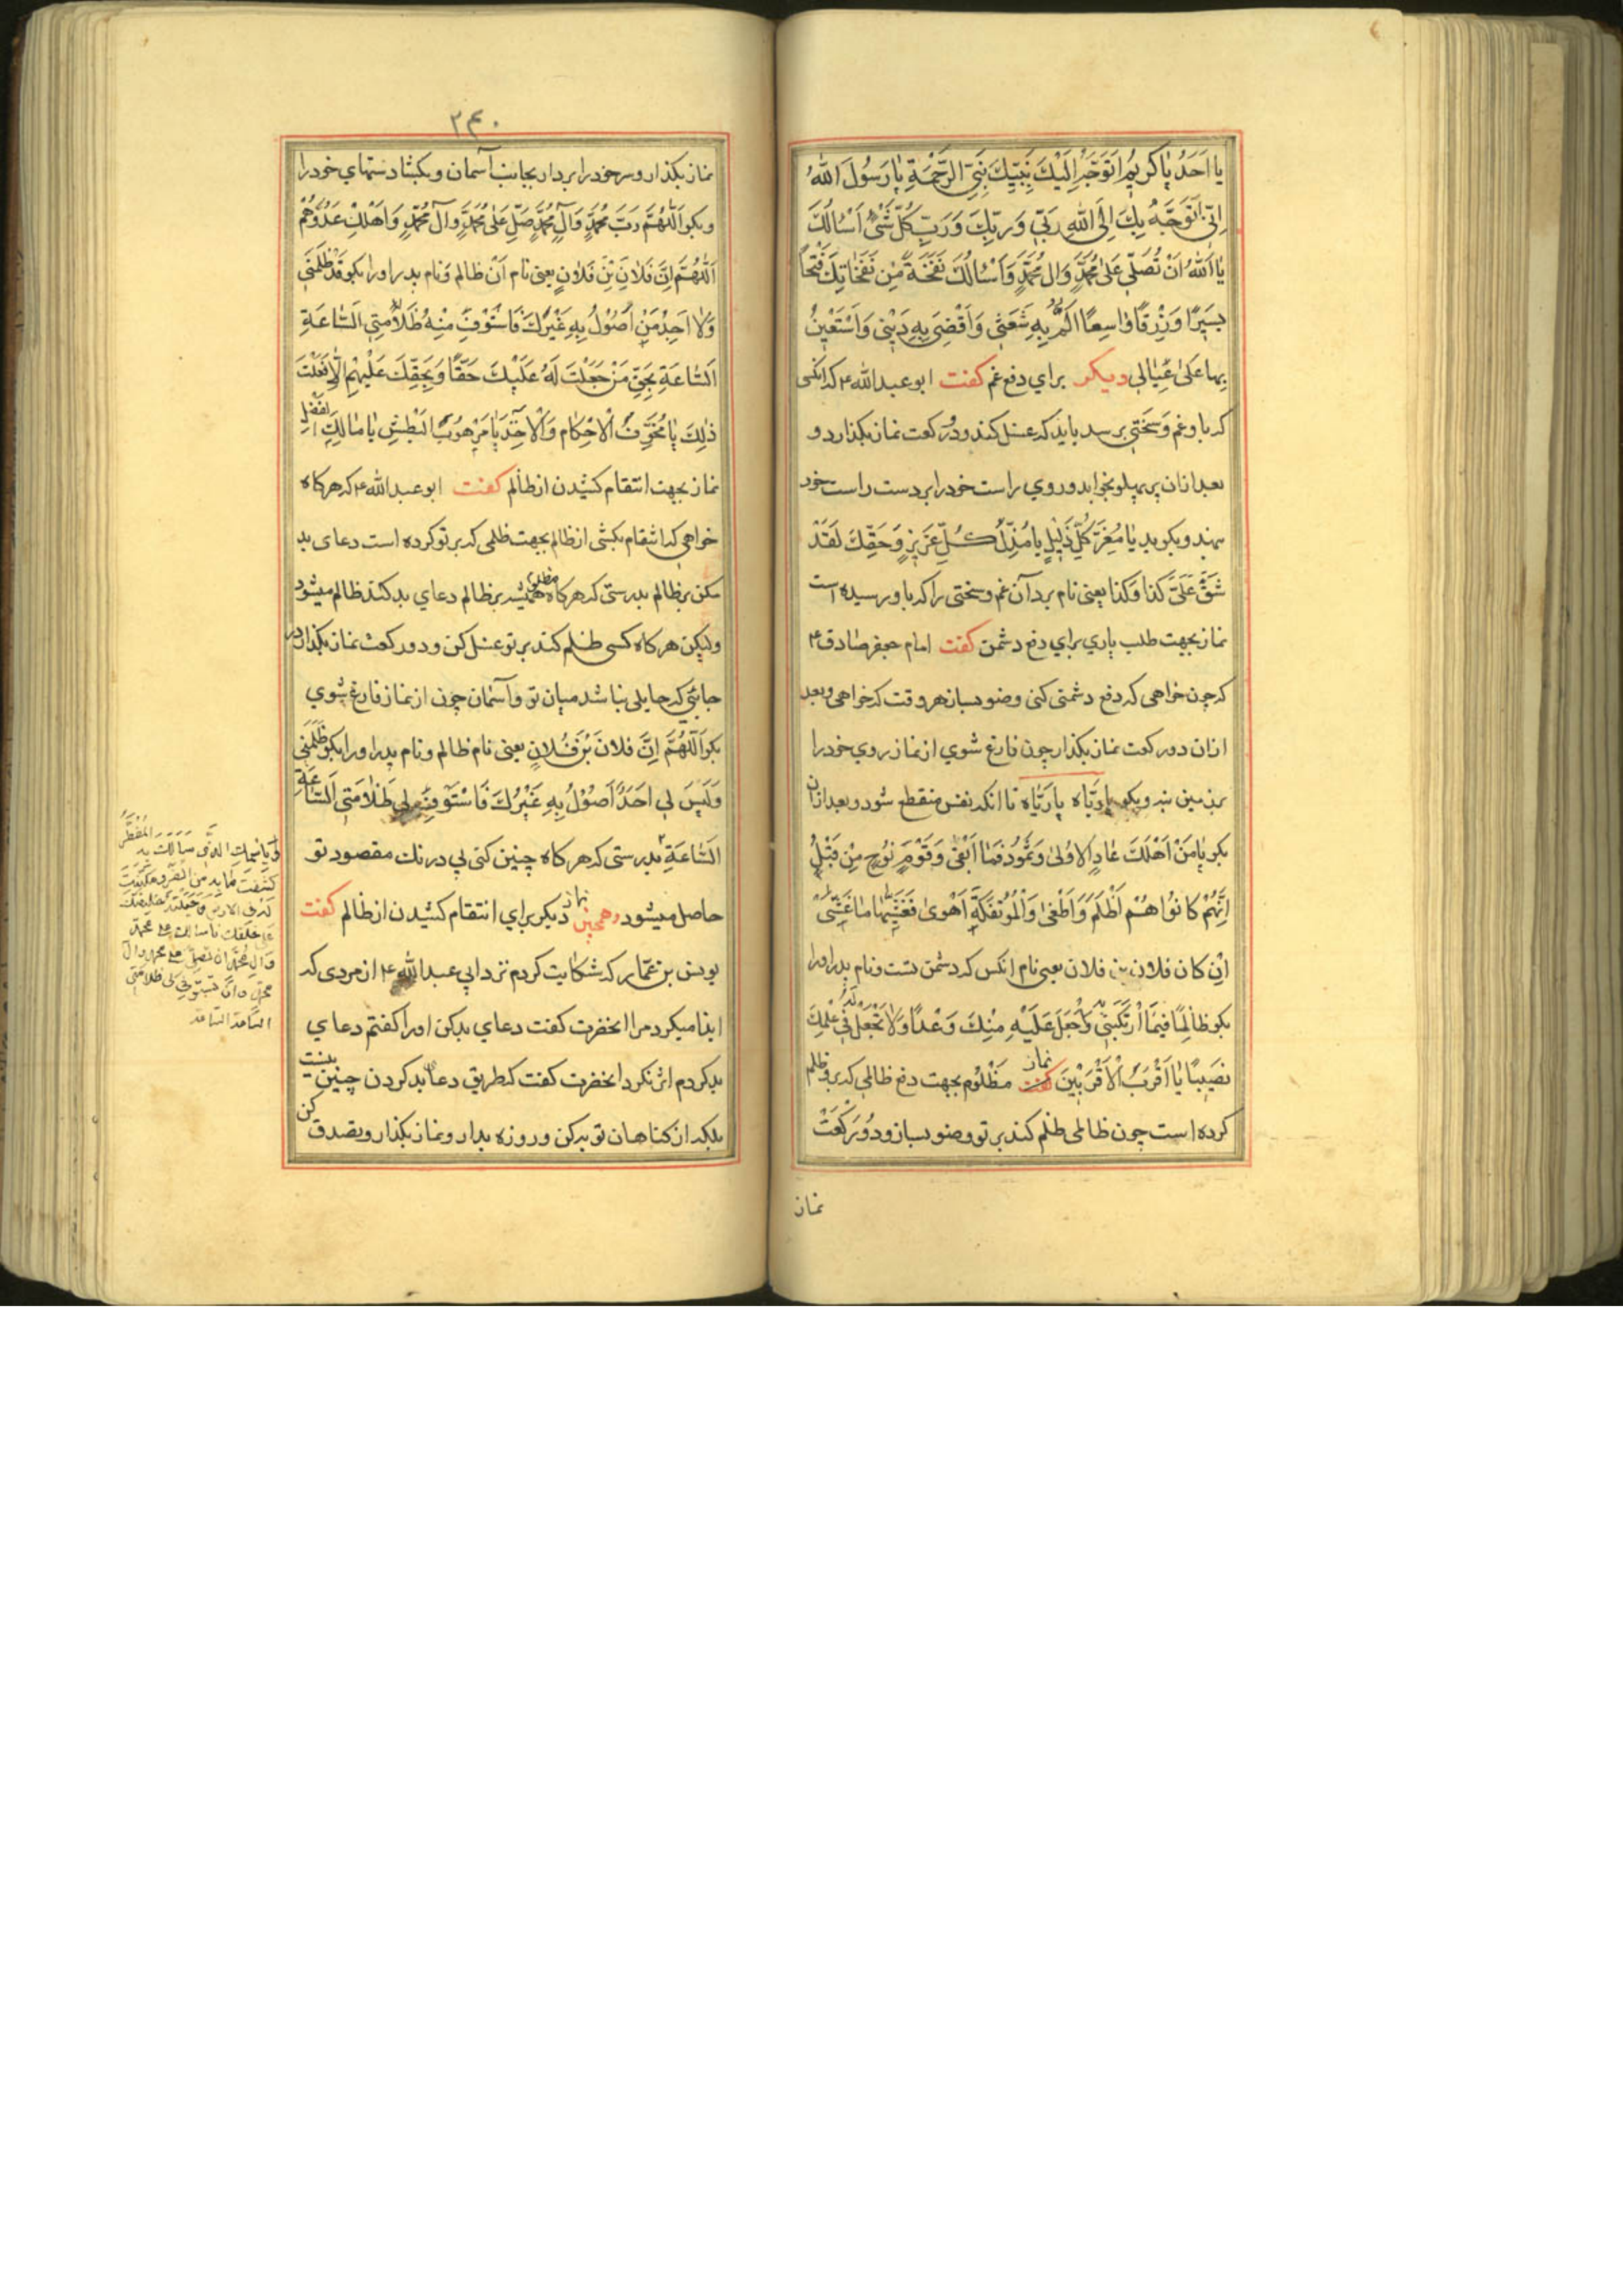 يا اَحَدُ يا كَريمُ اَتَوَجَّهُ اِلَيْكَ بِنَبِيِّكَ نَبِيِّ الرَّحْمَةِ يا رَسُولَ اللهِ
اِنّي اَتَوَجَّهُ بِكَ اِلَى اللهِ رَبّي وَرَبِّكَ وَرَبِّ كُلِّ شَيْءٍ اَسْئَالُكَ
يا اَللهُ اَنْ تُصَلِّيَ عَلى مُحَمَّدٍ وَالِ مُحَمَّدٍ وَاَسْئَالُكَ نَفْخَةً مِنْ نَفَخاتِكَ فَتْحًا
يَسيرًا وَرِزْقًا واسِعًا اَلُمُّ بِهِ شَعَثي وَاَقْضي بِهِ دَيْني وَاَسْتَعينُ
بِها عَلى عِيالي ديكر براي دفع غم كفت ابو عبد الله ع كه انكسى
كه با و غم و سختي برسد بايد كه غسل كند و دو ركعت نماز بكذارد و
بعد از ان بر پهلو بخوابد و روي راست خود را بر دست راست خود
بنهد و بكويد يا مُعِزَّ كُلِّ ذَليلٍ يا مُذِلَّ كُلِّ عَزيزٍ وَحَقِّكَ لَقَدْ
شَقَّ عَلَيَّ كَذا وَكَذا يعنى نام برد آن غم و سختى را كه با و رسيده است
نماز بجهت طلب ياري براي دفع دشمن كفت امام جعفر صادق ع
كه چون خواهى كه دفع دشمنى كنى وضو بساز هر وقت كه خواهى و بعد
از ان دو ركعت نماز بكذار چون فارغ شوي از نماز روي خود را
بر زمين بنه و بكو يا ربّاه يا ربّاه تا انكه نفس منقطع شود و بعد از ان
بكو يا مَنْ اَهْلَكَ عادٍ الاُولى وَثَمُودَ فَما اَبْقى وَقَوْمَ نُوحٍ مِنْ قَبْلُ
اِنَّهُمْ كانُوا هُمْ اَظْلَمَ وَاَطْغى وَالْمُؤْتَفِكَةَ اَهْوى فَغَشّيها ما غَشّى
اِنْ كان فلان بن فلان يعنى نام انكس كه دشمن تست و نام پدر او را
بكو ظالِمًا فيمَا ارْتَكَبَني وَاجْعَلْ عَلَيْهِ مِنْكَ وَعْدًا وَلا تَجْعَلْ لَهُ في عِلْمِكَ
نَصيبًا يا اَقْرَبَ الْاَقْرَبينَ نماز مظلوم بجهت دفع ظالمى كه بر و ظلم
كرده است چون ظالمى ظلم كند بر تو وضو بساز و دو ركعت
نماز
۲۴۰
نماز بكذار و سر خود را بردار بجانب آسمان و بكشا دستهاي خود را
و بكو اَللّهُمَّ رَبَّ مُحَمَّدٍ وَآلِ مُحَمَّدٍ صَلِّ عَلى مُحَمَّدٍ وَآلِ مُحَمَّدٍ وَاَهْلِكْ عَدُوَّهُمْ
اَللّهُمَّ اِنَّ فَلانَ بْنَ فَلانٍ يعنى نام ان ظالم و نام پدر او را بكو قَدْ ظَلَمَني
وَلا اَجِدُ مَنْ اَصُولُ بِهِ غَيْرَكَ فَاسْتَوْفِ مِنْهُ ظَلامَتي اَلسّاعَةِ
اَلسّاعَةِ بِحَقِّ مَنْ جَعَلْتَ لَهُ عَلَيْكَ حَقًّا وَبِحَقِّكَ عَلَيْهِمْ اِلّا فَعَلْتَ
ذلِكَ يا مُخَوِّفَ الْاَحْكامِ وَالْاَخْذِ يا مَرْهُوبَ الْبَطْشِ يا مالِكَ الْفَضْلِ
نماز بجهت انتقام كشيدن از ظالم كفت ابو عبد الله ع كه هركاه
خواهي كه انتقام بكشى از ظالم بجهت ظلمى كه بر تو كرده است دعاى بد
مكن بر ظالم بدرستى كه هركاه مظلوم هميشه بر ظالم دعاي بد كند ظالم ميشود
وليكن هركاه كسى ظلم كند بر تو غسل كن و دو ركعت نماز بكذار در
جائي كه حايلى نباشد ميان تو و آسمان چون از نماز فارغ شوي
بكو اَللّهُمَّ اِنَّ فلانَ بْنَ فُلانٍ يعنى نام ظالم و نام پدر او را بكو ظَلَمَني
وَلَيْسَ لي اَحَدٌ اَصُولُ بِهِ غَيْرُكَ فَاسْتَوْفِ لي ظَلامَتي اَلسّاعَةِ
السّاعَةِ بدرستى كه هركاه چنين كنى بي درنك مقصود تو
حاصل ميشود همچنين نماز ديكر براي انتقام كشيدن از ظالم كفت
يونس بن عمّار كه شكايت كردم نزد ابي عبد الله ع از مردى كه
ايذا ميكرد مرا انحضرت كفت دعاي بد كن او را كفتم دعاي
بد كردم اثر نكرد انحضرت كفت كه طريق دعا بد كردن چنين نيست
بلكه از كناهان توبه كن و روزه بدار و نماز بكذار و تصدق كن
المُضْطَرُّ
بِاسْمِكَ الَّذي سَاَلَكَ بِهِ
كَشَفْتَ ما بِهِ مِنْ الضُّرِّ وَمَكَّنْتَ
لَهُ فِي الارضِ وَجَعَلْتَهُ خَليفَتَكَ
على خلقك فاسألك على محمد
وَالِ مُحَمَّد ان تصلّي على محمد وال
محمد وان تستوفي لى ظلامتي
السّاعة السّاعة